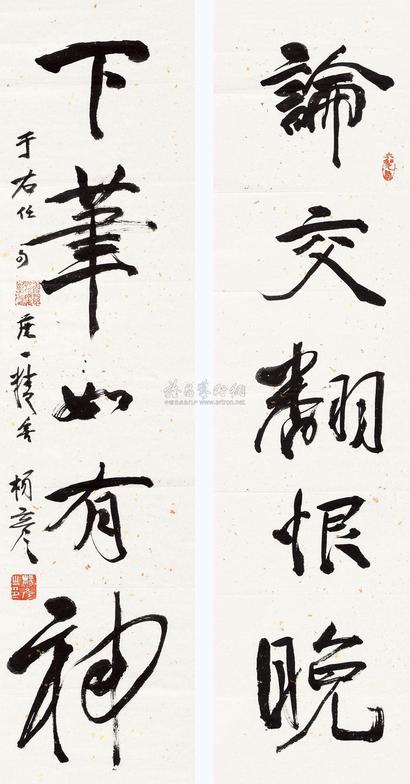 論交翻恨晚
下筆如有神
于右任句
楊彥
雅昌藝術網
www.artron.net